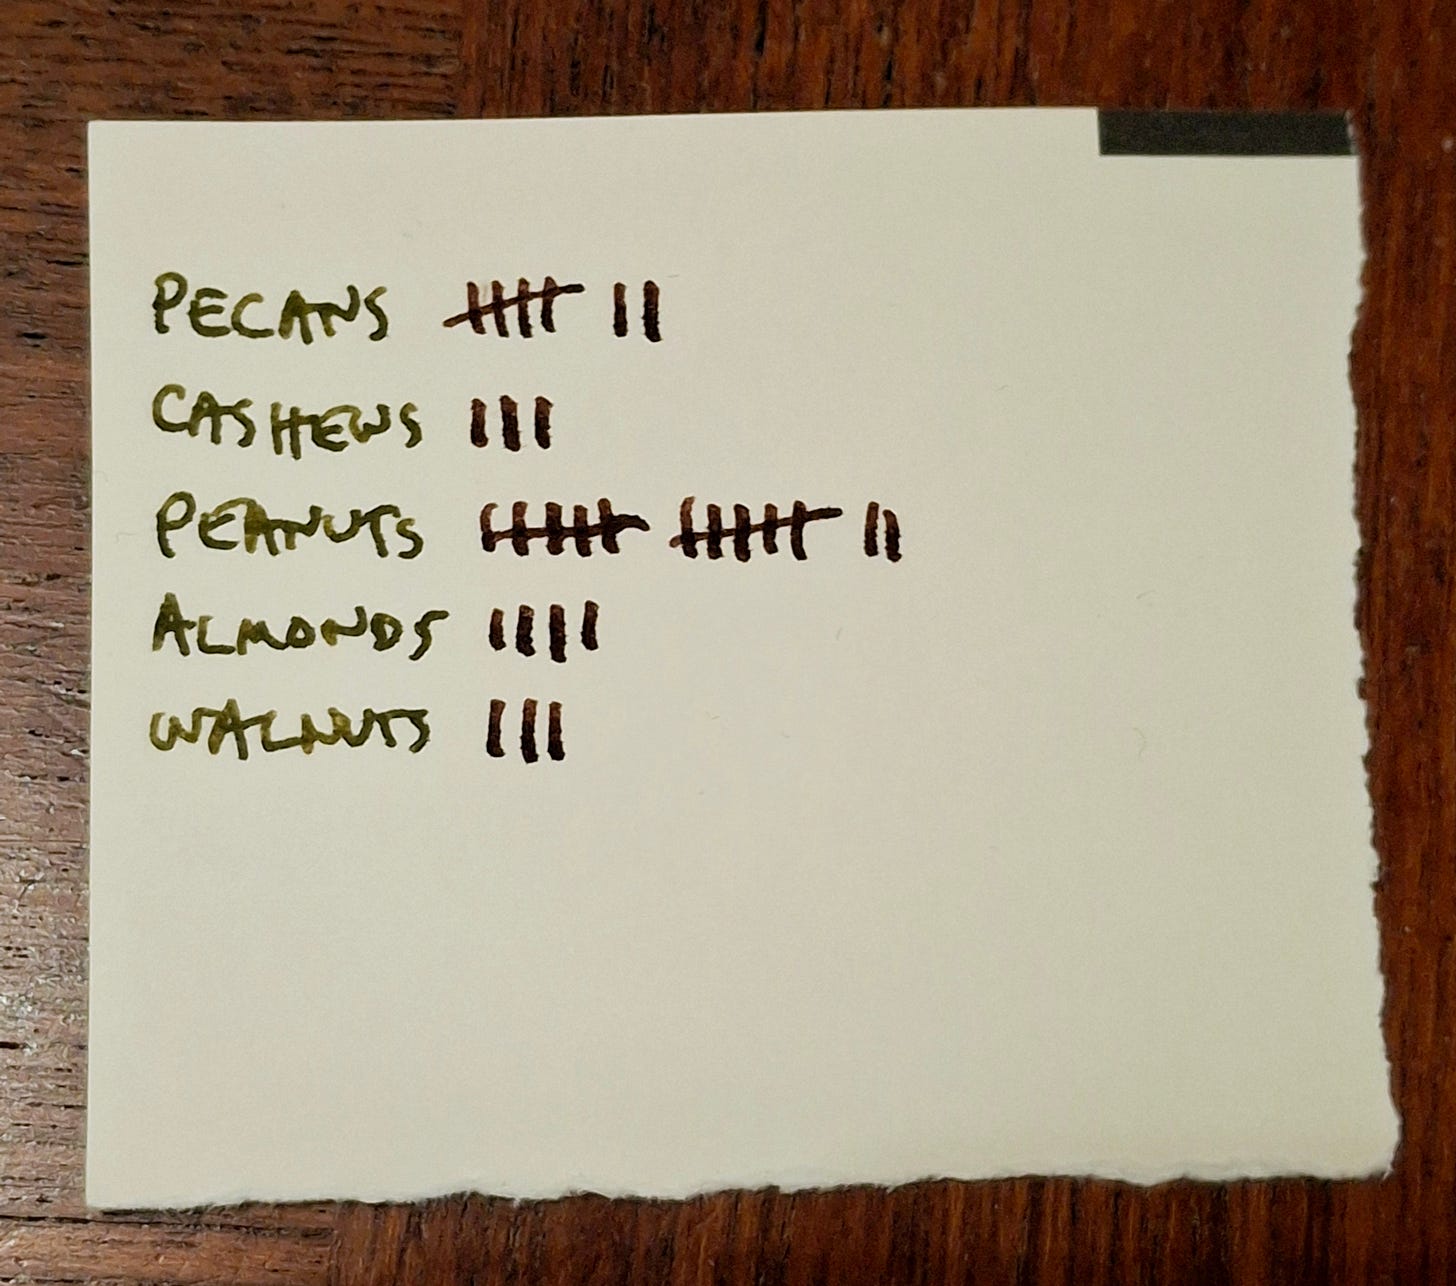 PECANS ||||/ ||
CASHEWS |||
PEANUTS |||||/ |||||/ ||
ALMONDS ||||
WALNUTS |||